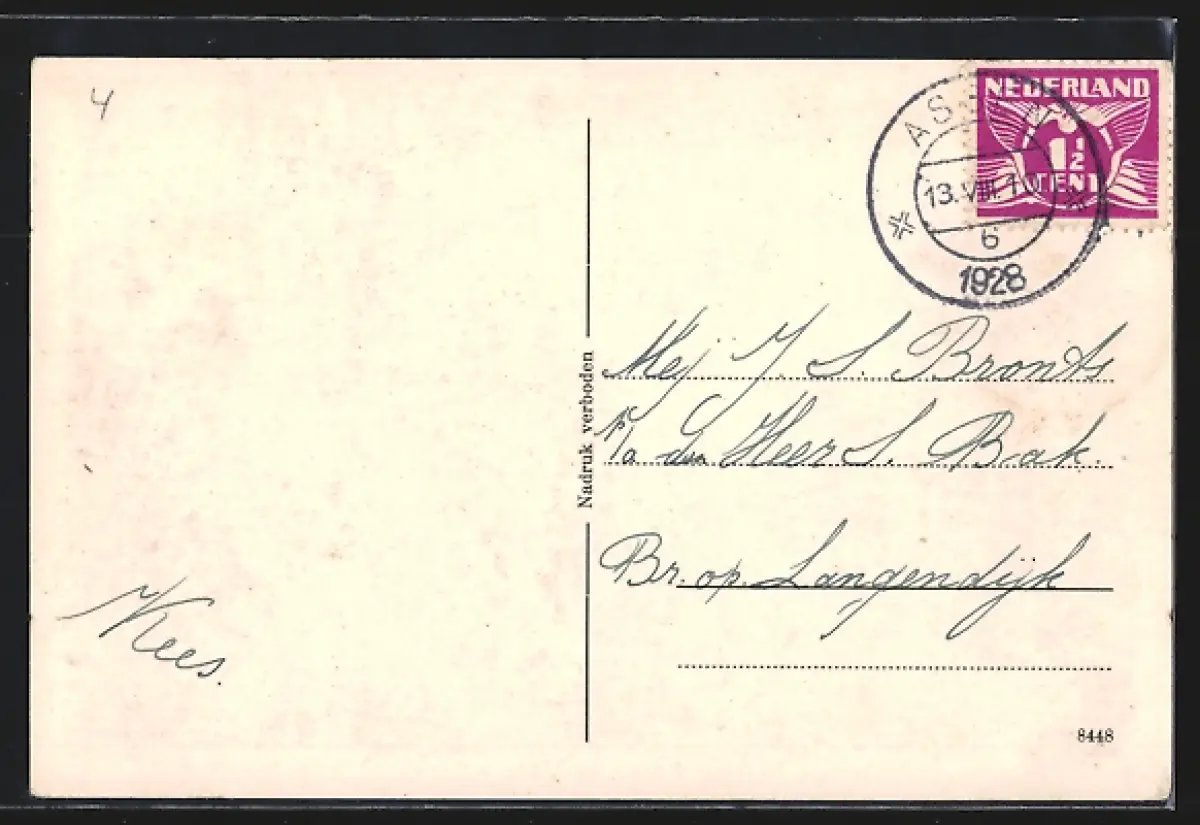 4
NEDERLAND
1½
CENT
ASSEN
13.VIII.1
6
1928
Mej J. S. Bronts
p/a den Heer S. Bak.
Br. op. Langendijk
Nadruk verboden
Kees.
8448